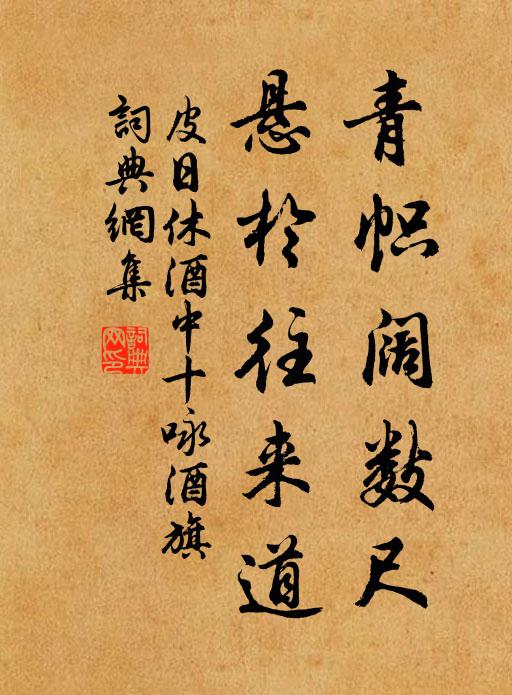 青帜阔数尺
悬於往来道
皮日休酒中十咏酒旗
詞典網集
詞典网印